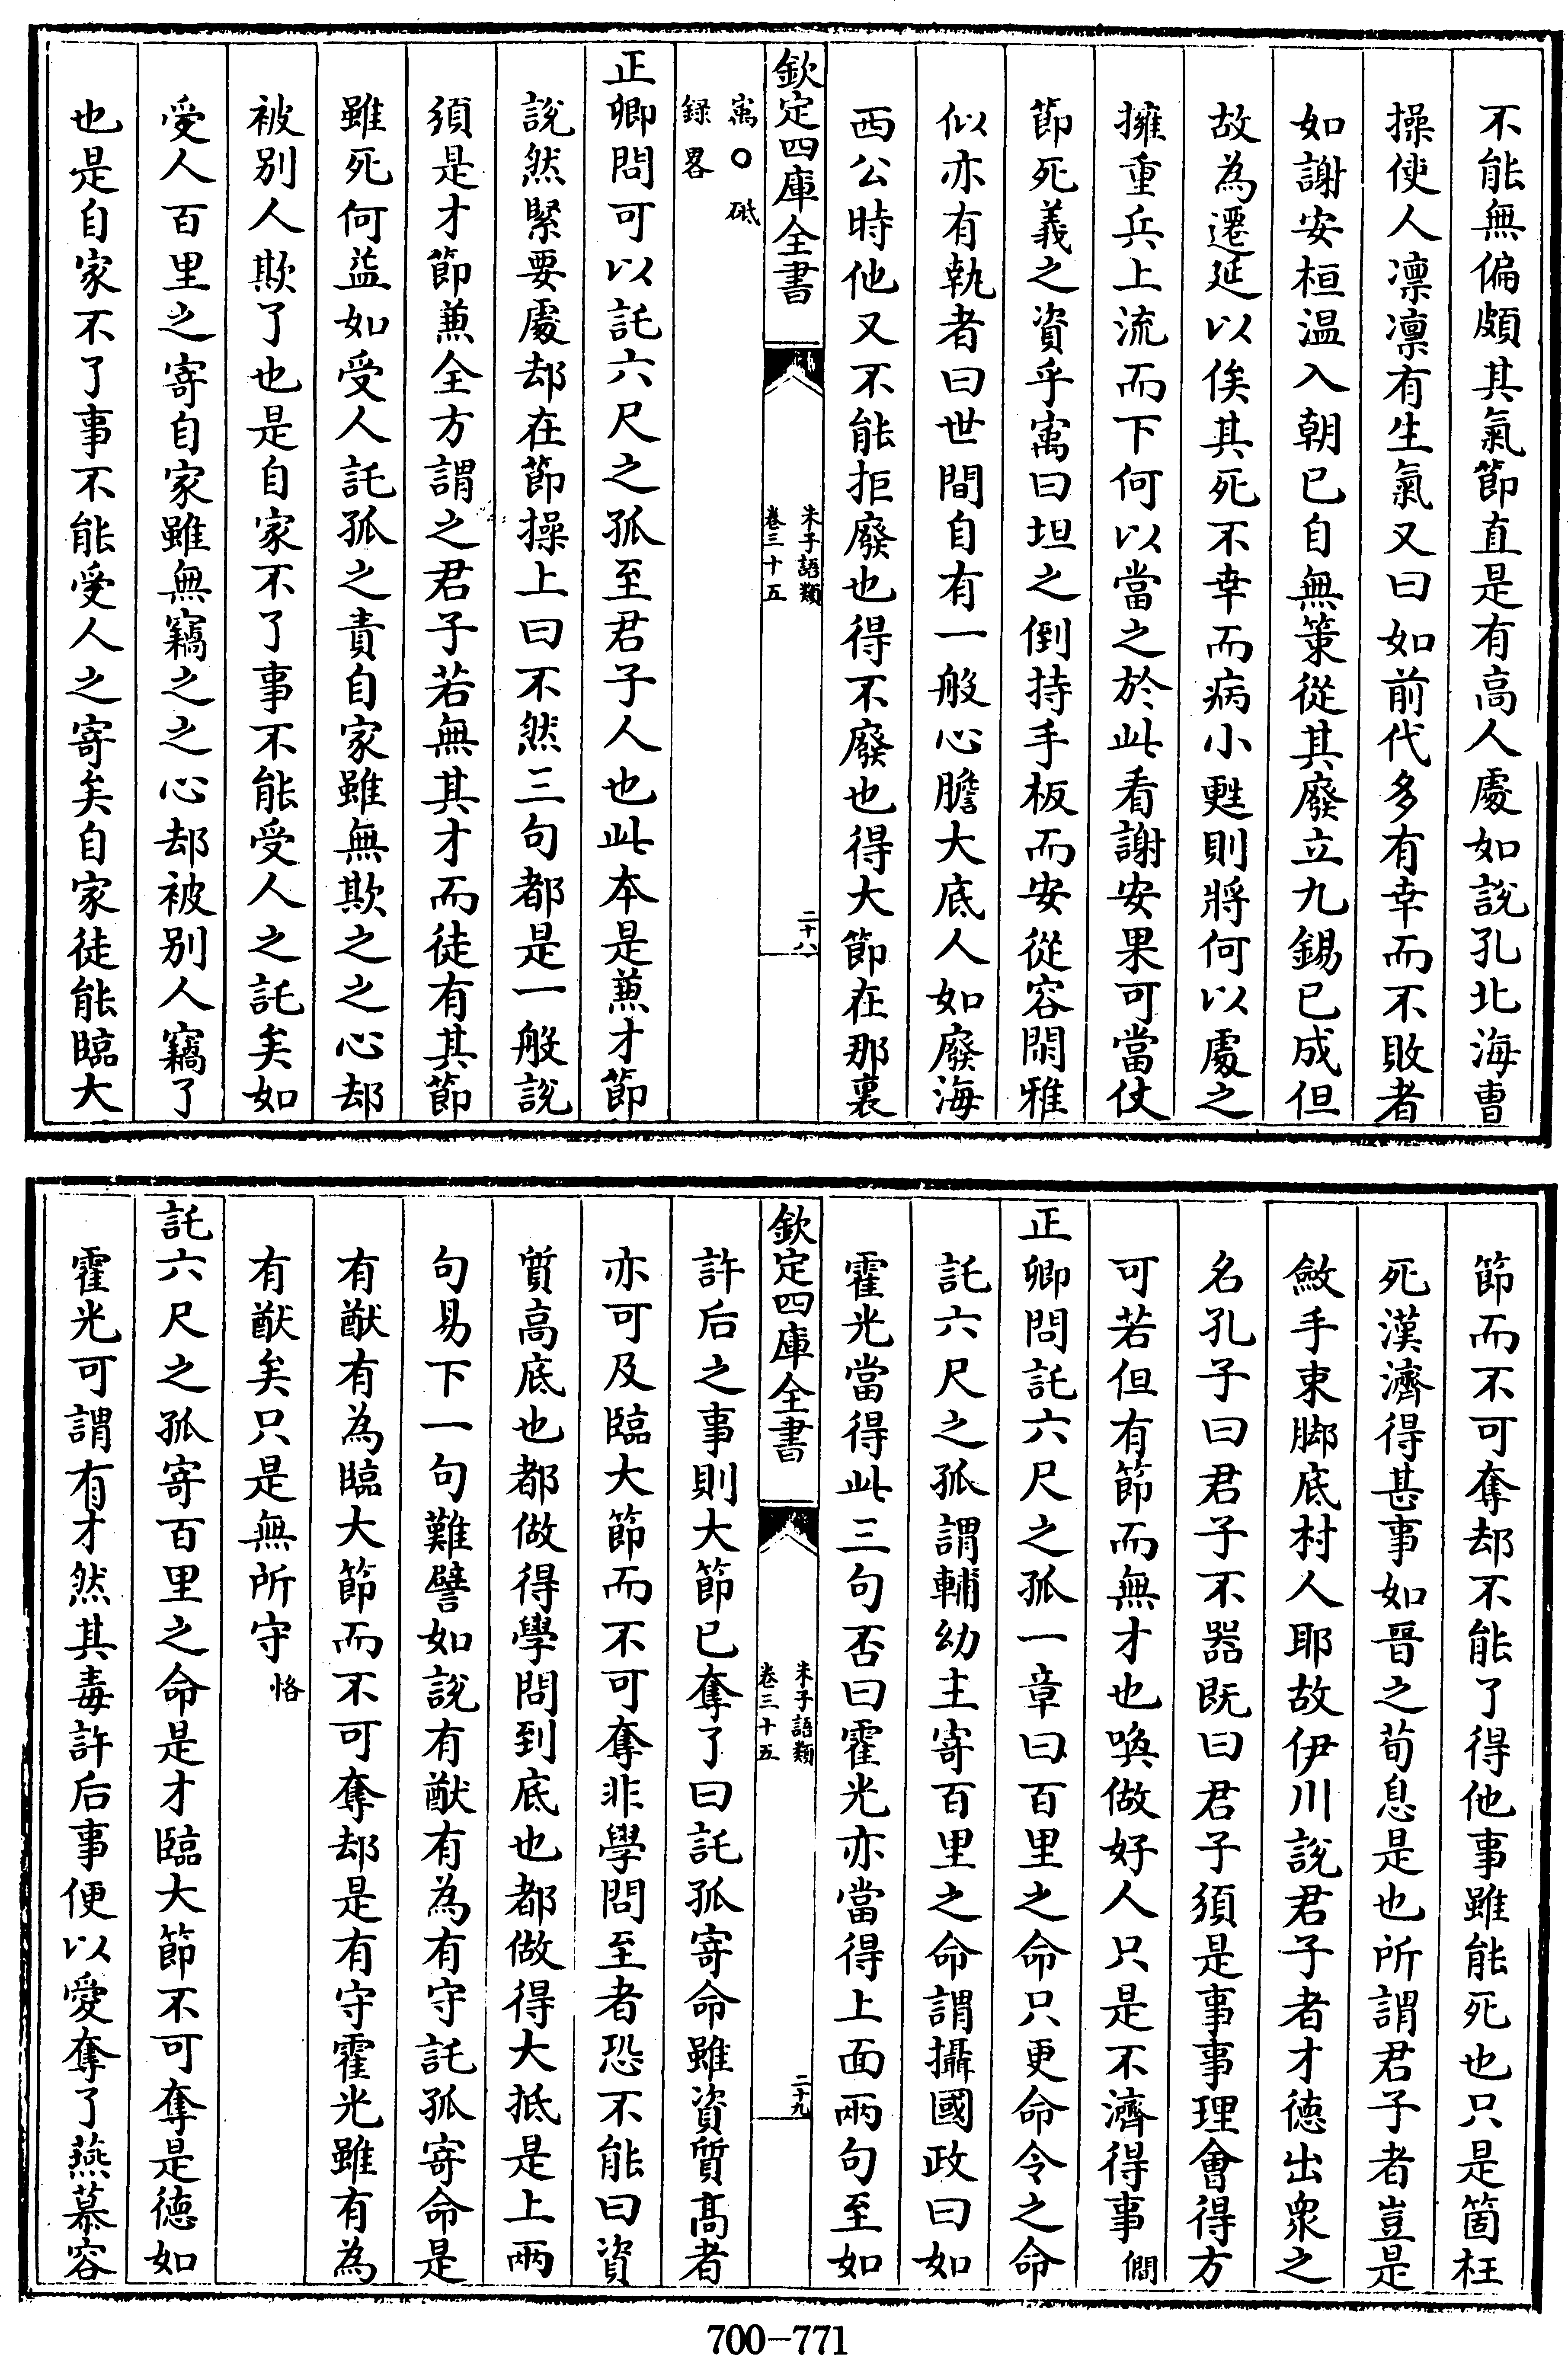 不能無偏頗其氣節直是有高人處如說孔北海曹
操使人凛凛有生氣又曰如前代多有幸而不敗者
如謝安桓温入朝已自無策從其廢立九錫已成但
故為遷延以俟其死不幸而病小甦則將何以處之
擁重兵上流而下何以當之於此看謝安果可當仗
節死義之資乎寓曰坦之倒持手板而安從容閒雅
似亦有執者曰世間自有一般心膽大底人如廢海
西公時他又不能拒廢也得不廢也得大節在那裏
欽定四庫全書
朱子語類
卷三十五
二十八
寓○砥
録畧
正卿問可以託六尺之孤至君子人也此本是兼才節
說然緊要處却在節操上曰不然三句都是一般說
須是才節兼全方謂之君子若無其才而徒有其節
雖死何益如受人託孤之責自家雖無欺之之心却
被别人欺了也是自家不了事不能受人之託矣如
受人百里之寄自家雖無竊之之心却被别人竊了
也是自家不了事不能受人之寄矣自家徒能臨大
節而不可奪却不能了得他事雖能死也只是箇枉
死漢濟得甚事如晉之荀息是也所謂君子者豈是
斂手束脚底村人耶故伊川說君子者才徳出衆之
名孔子曰君子不器既曰君子須是事事理會得方
可若但有節而無才也喚做好人只是不濟得事 僩
正卿問託六尺之孤一章曰百里之命只更命令之命
託六尺之孤謂輔幼主寄百里之命謂攝國政曰如
霍光當得此三句否曰霍光亦當得上面兩句至如
欽定四庫全書
朱子語類
卷三十五
二十九
許后之事則大節已奪了曰託孤寄命雖資質高者
亦可及臨大節而不可奪非學問至者恐不能曰資
質高底也都做得學問到底也都做得大抵是上兩
句易下一句難譬如說有猷有為有守託孤寄命是
有猷有為臨大節而不可奪却是有守霍光雖有為
有猷矣只是無所守 恪
託六尺之孤寄百里之命是才臨大節不可奪是徳如
霍光可謂有才然其毒許后事便以愛奪了燕慕容
700-771